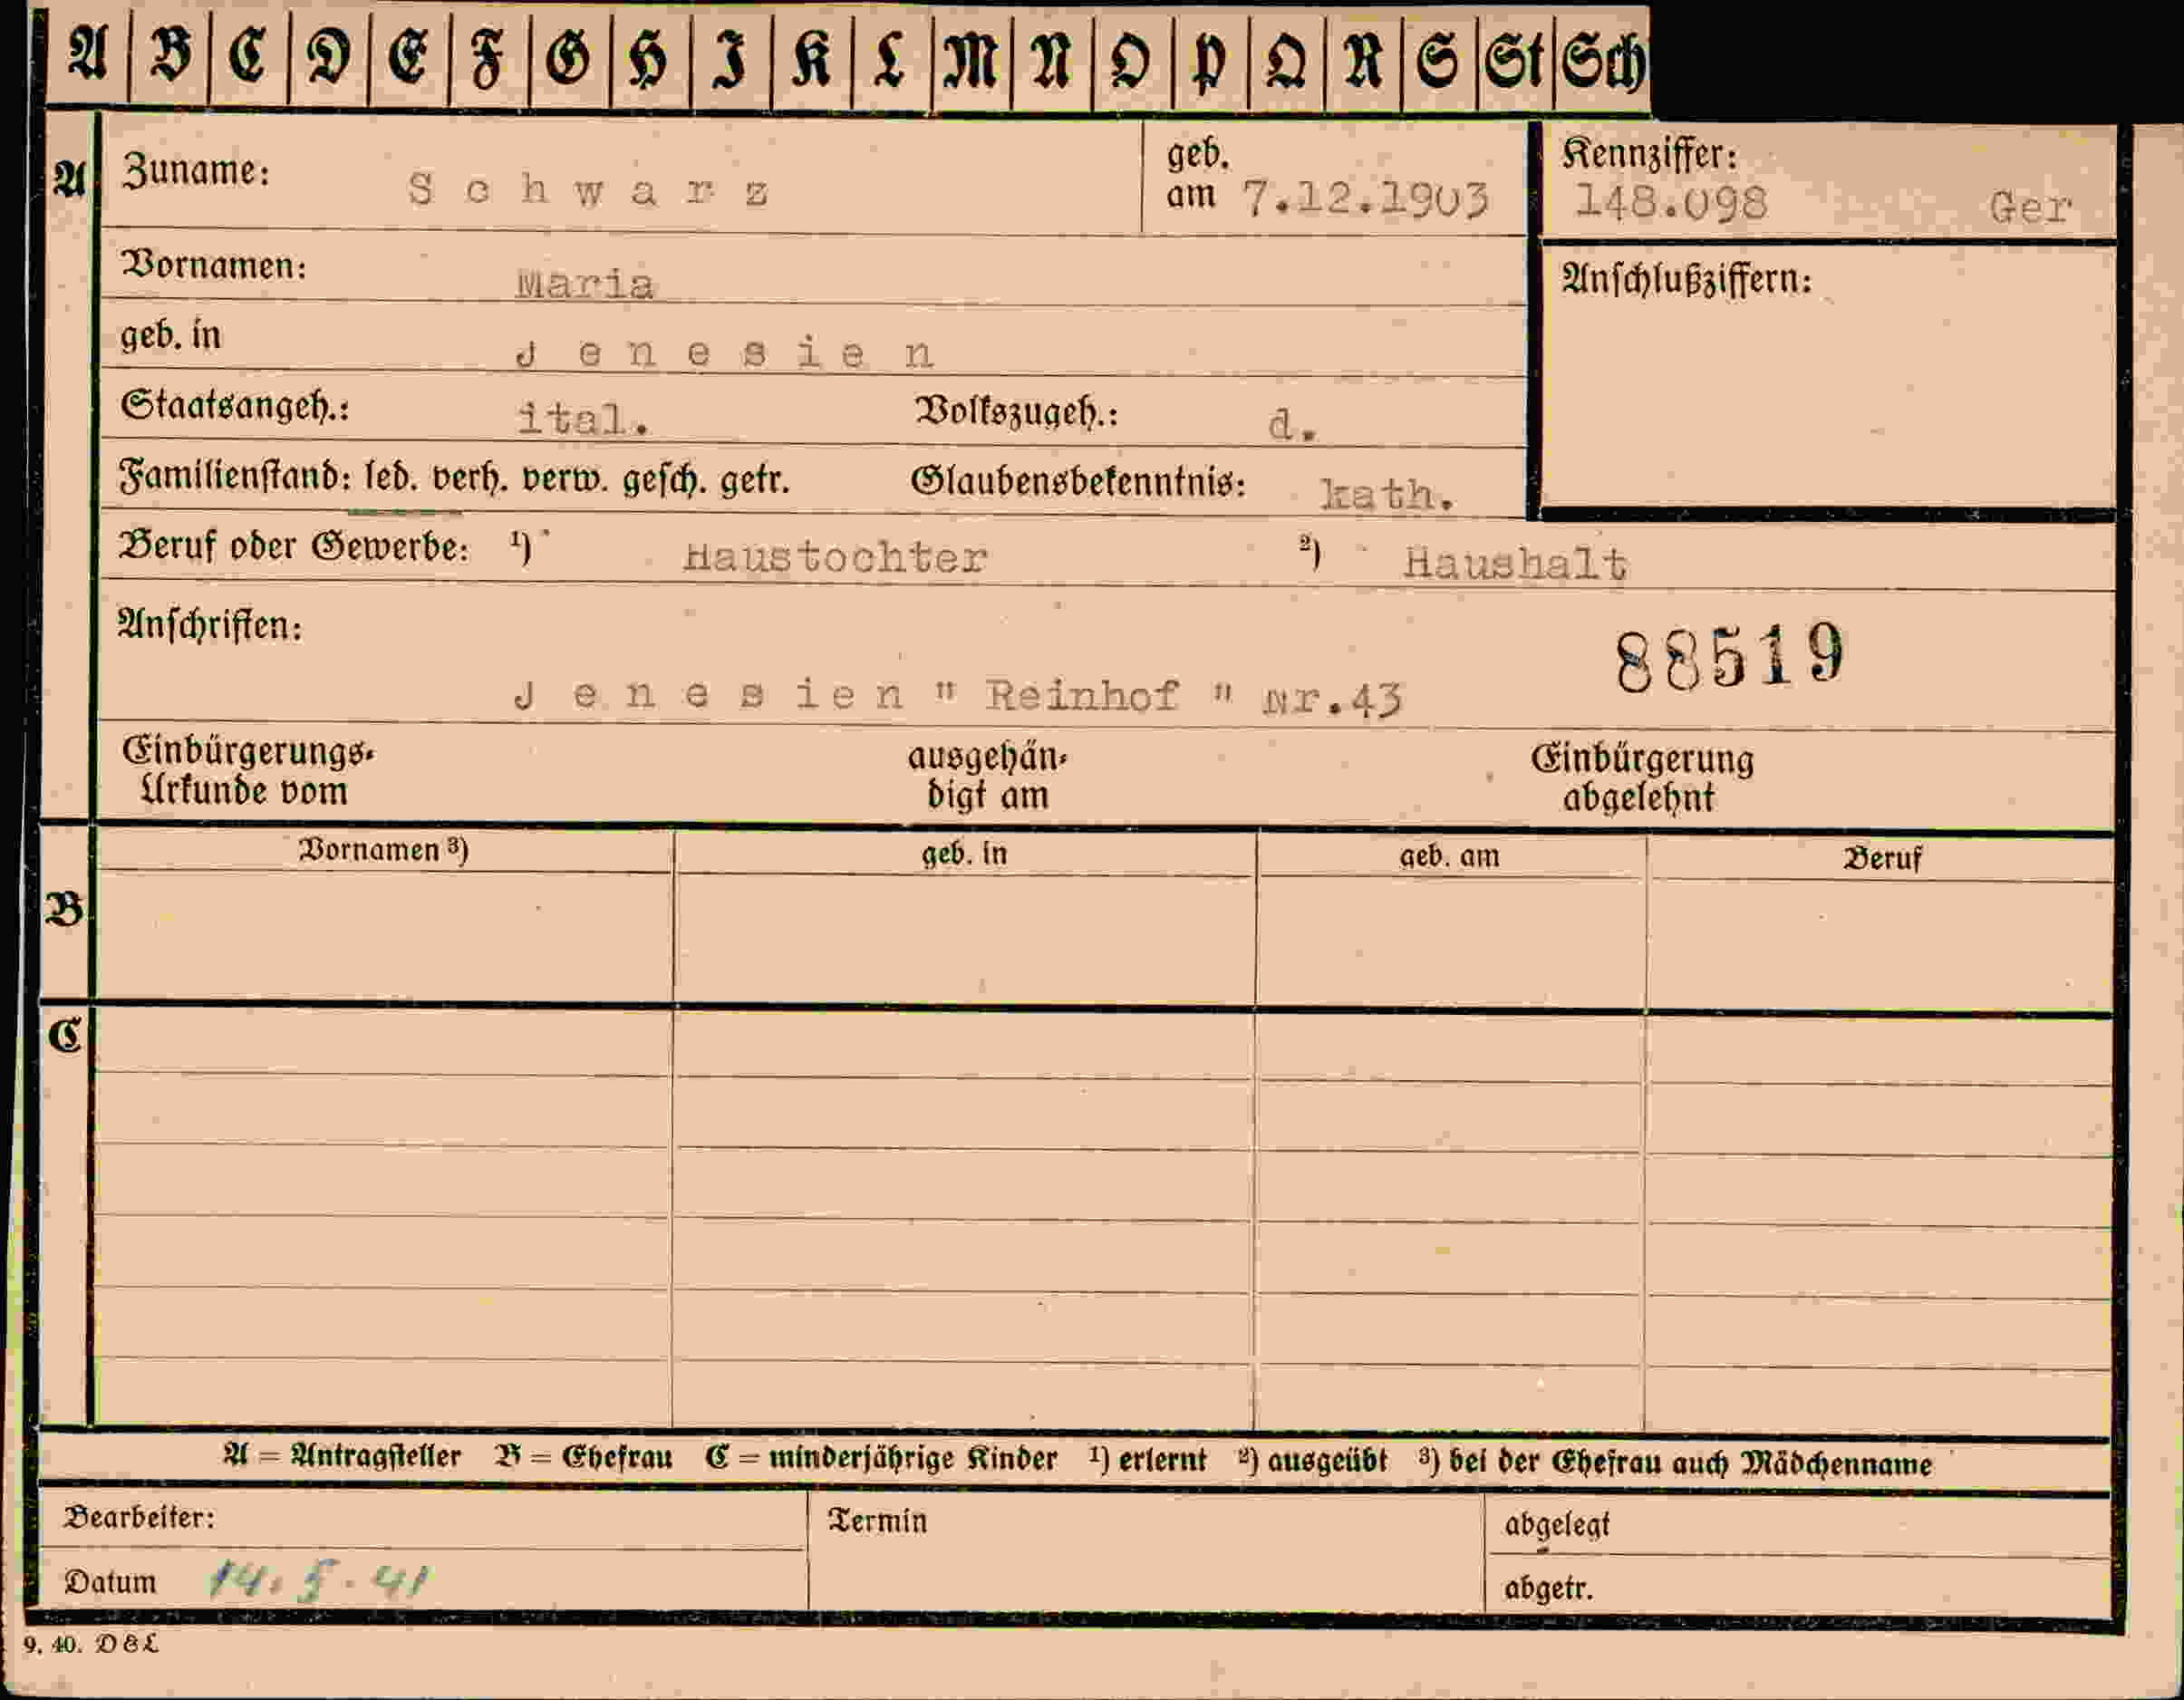 A B C D E F G H I K L M N O P Q R S St Sch
A Zuname: Schwarz geb. am 7.12.1903 Kennziffer: 148.098 Ger
Vornamen: Maria Anschlußziffern:
geb. in Jenesien
Staatsangeh.: ital. Volkszugeh.: d.
Familienstand: led. verh. verw. gesch. getr. Glaubensbekenntnis: kath.
Beruf oder Gewerbe: ¹) Haustochter ²) Haushalt
Anschriften:
88519
Jenesien " Reinhof " Nr.43
Einbürgerungs- ausgehän- Einbürgerung
Urkunde vom digt am abgelehnt
Vornamen ³) geb. in geb. am Beruf
B
C
A = Antragsteller B = Ehefrau C = minderjährige Kinder ¹) erlernt ²) ausgeübt ³) bei der Ehefrau auch Mädchenname
Bearbeiter: Termin abgelegt
Datum 14.5.41 abgetr.
9. 40. D&L